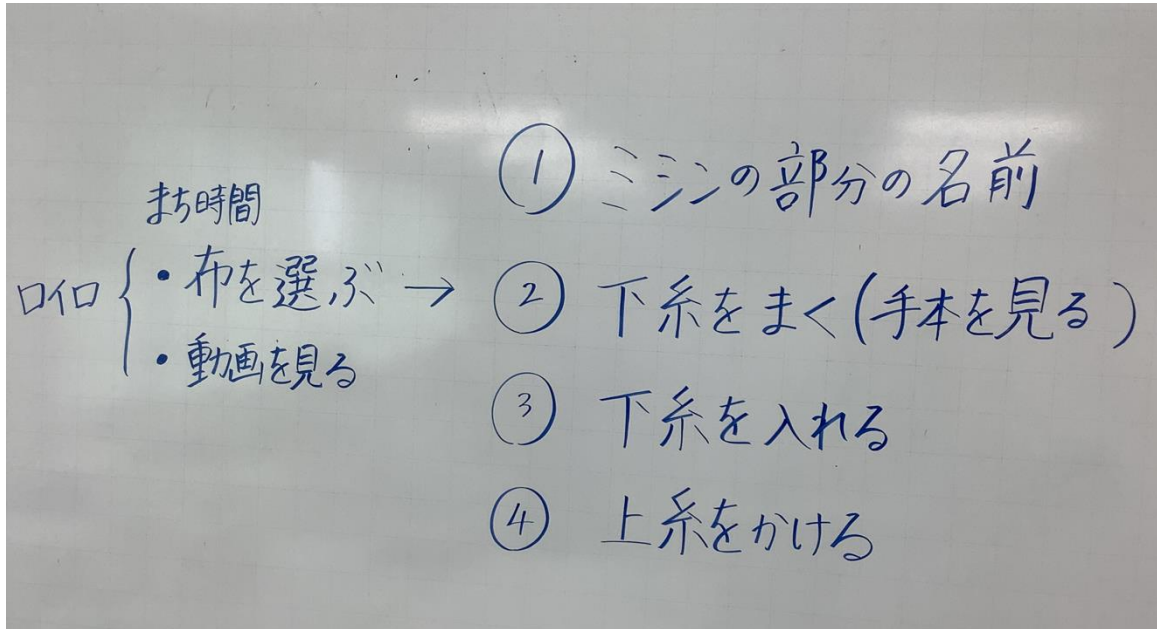 まち時間
ロイロ{・布を選ぶ→
・動画を見る
① ミシンの部分の名前
② 下糸をまく(手本を見る)
③ 下糸を入れる
④ 上糸をかける